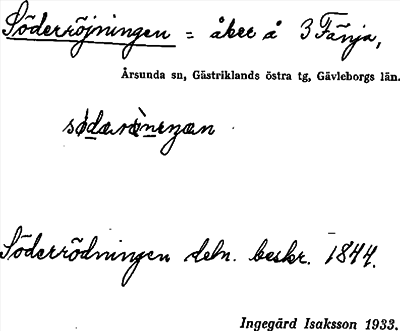 Söderröjningen = åker å 3 Fänja,
Årsunda sn, Gästriklands östra tg, Gävleborgs län.
Söderrödningen deln. beskr. 1844.
Ingegärd Isaksson 1933.